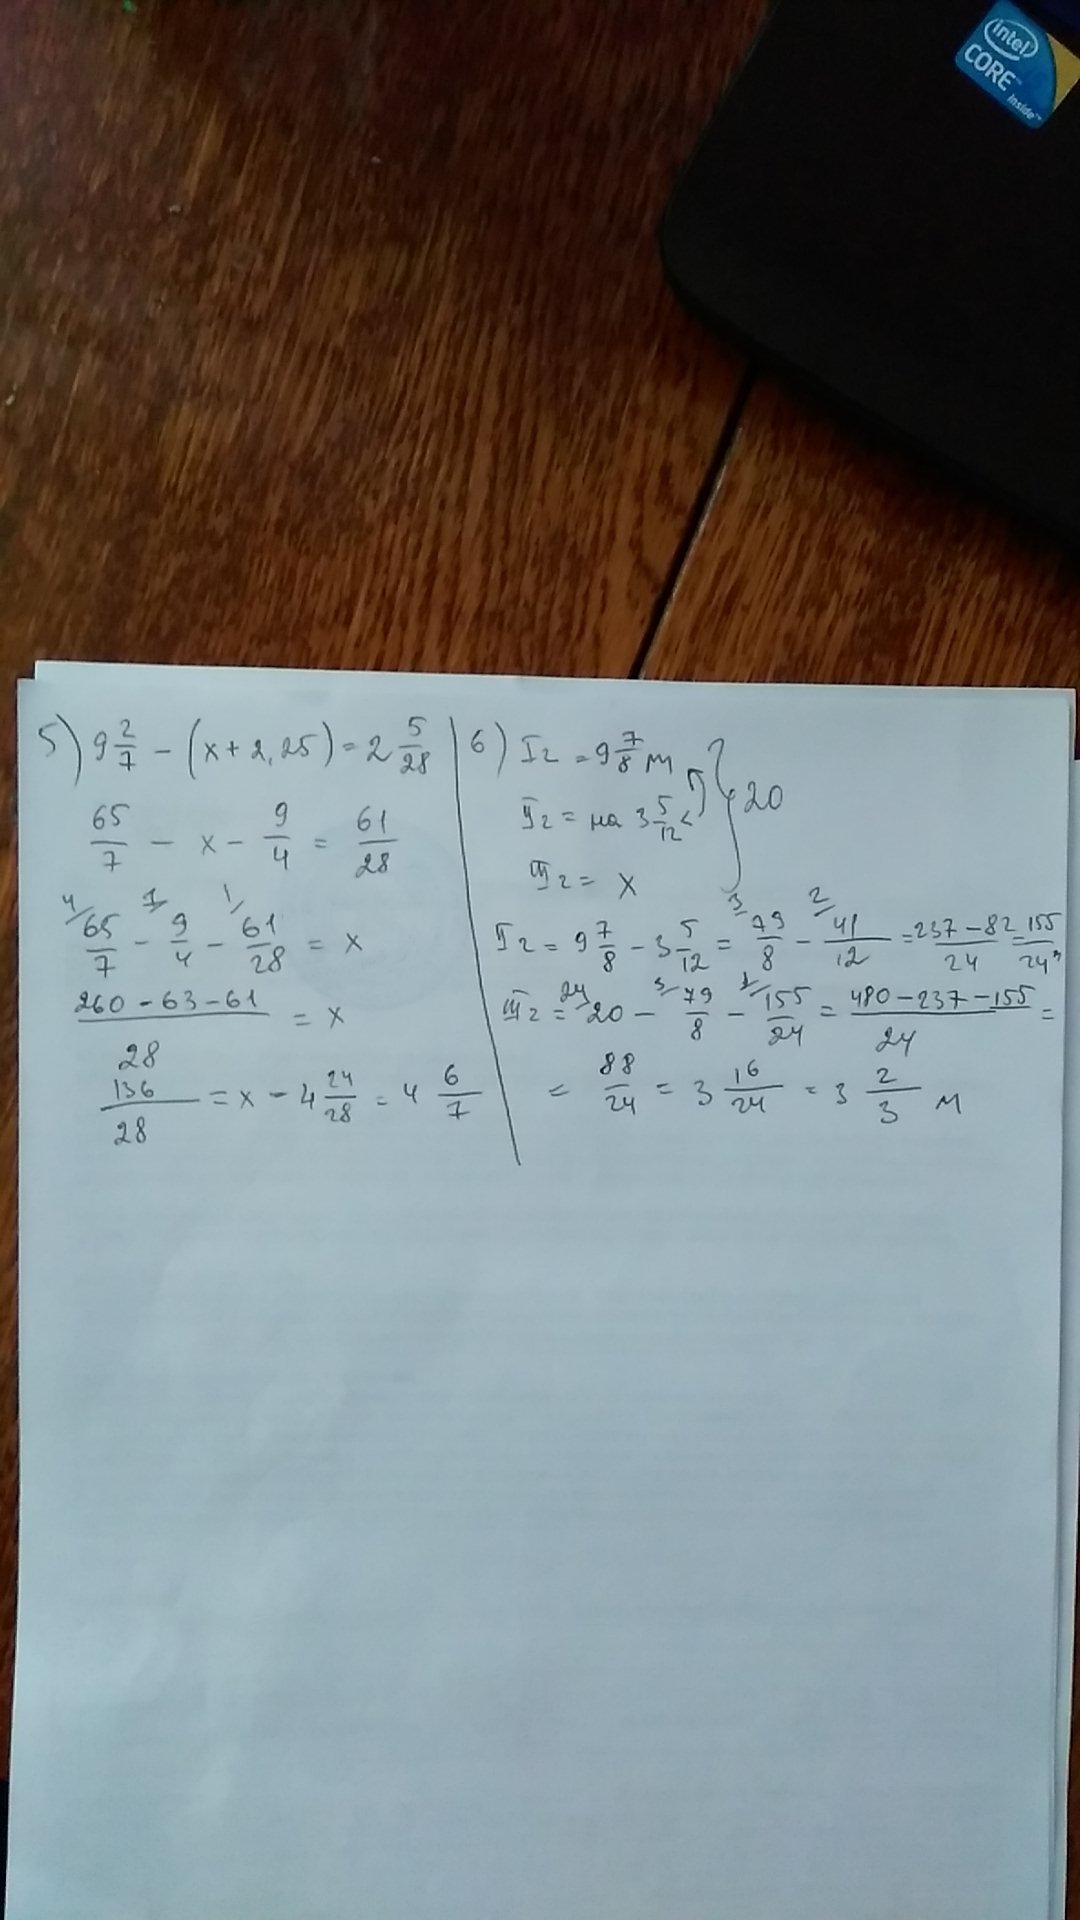 intel
CORE
inside™
5) 9 2/7 - (x + 2,25) = 2 5/28
65/7 - x - 9/4 = 61/28
4/ 65/7 - 7/ 9/4 - 1/ 61/28 = x
260 - 63 - 61 / 28 = x
136/28 = x - 4 24/28 = 4 6/7
6) I г = 9 7/8 м
II г = на 3 5/12 <
20
III г = x
II г = 9 7/8 - 3 5/12 = 3/ 79/8 - 2/ 41/12 = 237 - 82 / 24 = 155/24
III г = 24/ 20 - 3/ 79/8 - 1/ 155/24 = 480 - 237 - 155 / 24 =
= 88/24 = 3 16/24 = 3 2/3 м